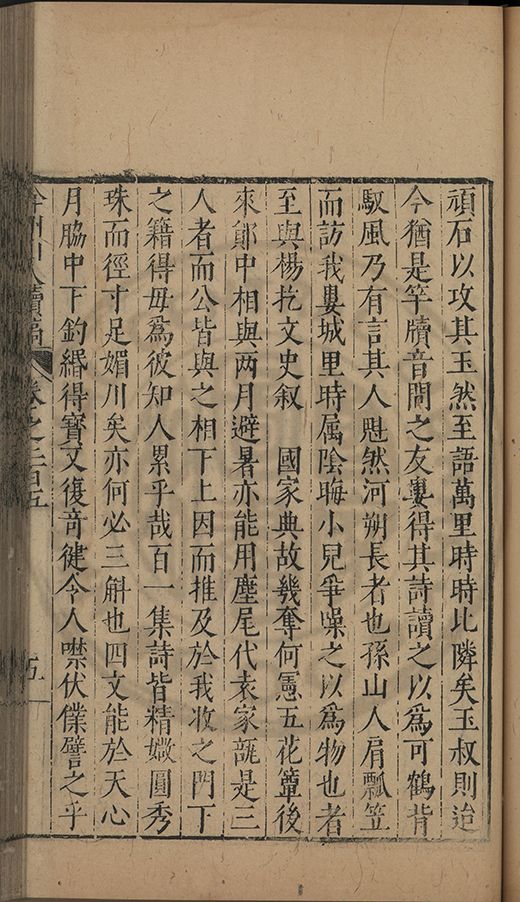 頑石以攻其玉然至語萬里時時比隣矣玉叔則迨
今猶是竿牘音問之友婁得其詩讀之以爲可鶴背
馭風乃有言其人魋然河朔長者也孫山人肩瓢笠
而訪我婁城里時属陰晦小兒爭噪之以爲物也者
至與楊扢文史叙　國家典故幾奪何憲五花簟後
來鄖中相與两月避暑亦能用麈尾代袁家䶎是三
人者而公皆與之相下上因而推及於我收之門下
之籍得毋爲彼知人累乎哉百一集詩皆精媺圓秀
珠而徑寸足媚川矣亦何必三斛也四文能於天心
月脇中下釣緡得寳文復竒健令人噤伏僕譬之乎
弇州山人續稿　卷之二百五　五